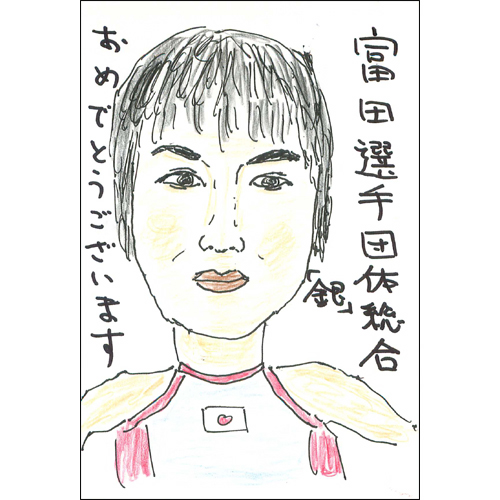 富田選手団体総合
「銀」
おめでとうございます